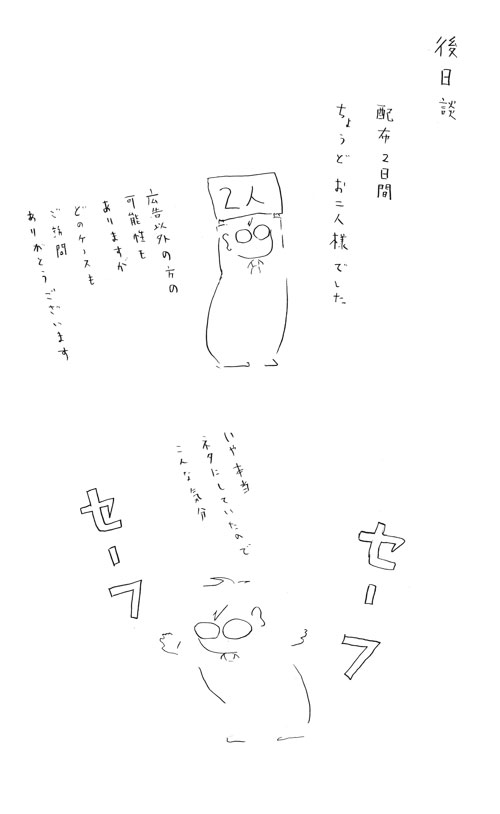 後日談
配布2日間
ちょうどお二人様でした
2人
広告以外の方の
可能性も
ありますが
どのケースも
ご訪問
ありがとうございます
いや本当
ネタにしていたので
こんな気分
セーフ
セーフ